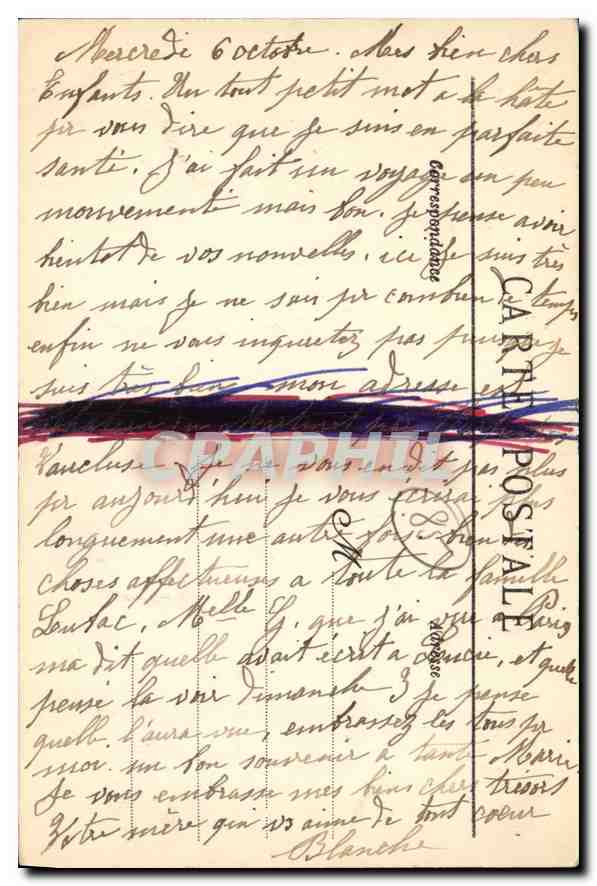 Mercredi 6 octobre. Mes bien chers
Enfants. Un tout petit mot a la hâte
pr vous dire que je suis en parfaite
santé. J'ai fait un voyage un peu
mouvementé mais bon. Je pense avoir
bientot de vos nouvelles, ici je suis très
bien mais je ne sais pr combien de temps
enfin ne vous inquietez pas puisque je
suis très bien mon adresse est
Vaucluse. Je ne vous en dit pas plus
pr aujourd'hui je vous écrirai plus
longuement une autre fois bien
choses affectueuses a toute la famille
Melle G. que j'ai vue a Paris
ma dit quelle avait écrit a Lucie, et quelle
pense la voir dimanche 3 je pense
quelle l'aura vue, embrassez les tous pr
moi un bon souvenir a tante Marie
Je vous embrasse mes biens chers trésors
Votre mère qui vs aime de tout coeur
Blanche
CARTE POSTALE
Correspondance
Adresse
M
CPAPHIL